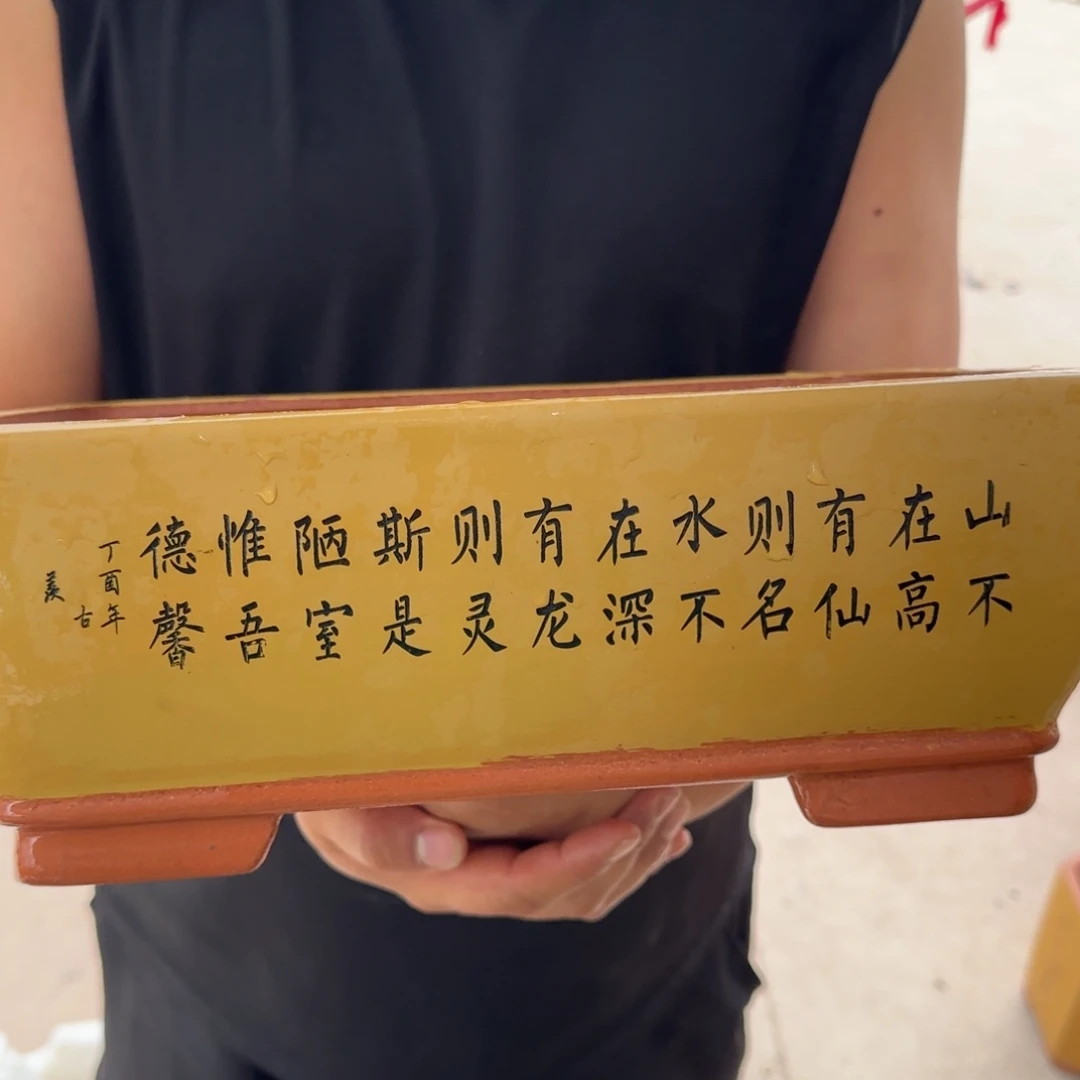 山不
在高
有仙
则名
水不
在深
有龙
则灵
斯是
陋室
惟吾
德馨
丁酉年
古
羡